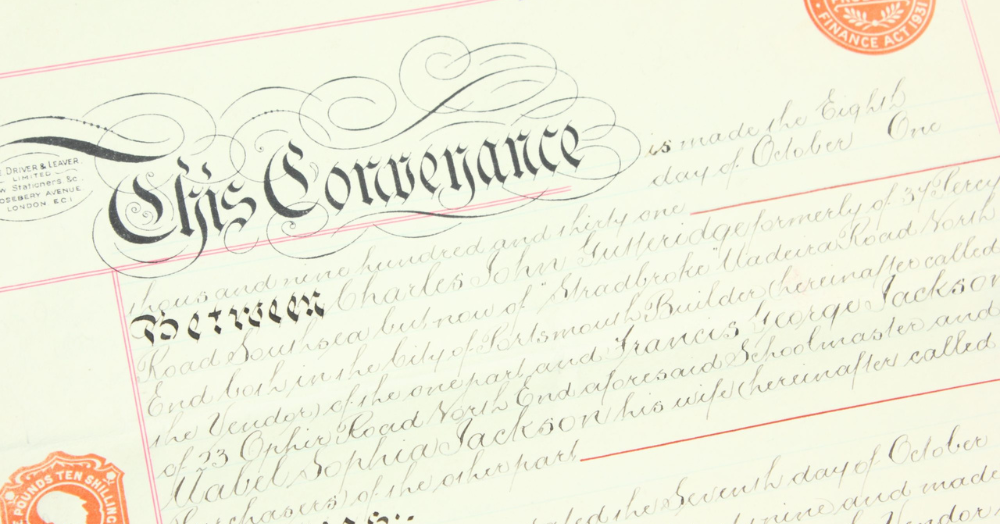 FINANCE ACT 1931
DRIVER & LEAVER
LIMITED
Stationers &c.
ROSEBERY AVENUE
LONDON. E.C.1
This Conveyance is made the Eighth
day of October One
thousand nine hundred and thirty one
Between Charles John Gutteridge formerly of 37 Percy
Road Southsea but now of "Stradbroke" Madeira Road North
End both in the City of Portsmouth Builder (hereinafter called
the Vendor) of the one part and Francis George Jackson
of 23 Ophir Road North End aforesaid Schoolmaster and
Mabel Sophia Jackson his wife (hereinafter called
Purchasers) of the other part
the Seventh day of October
nine and made
Vendor
POUNDS TEN SHILLING